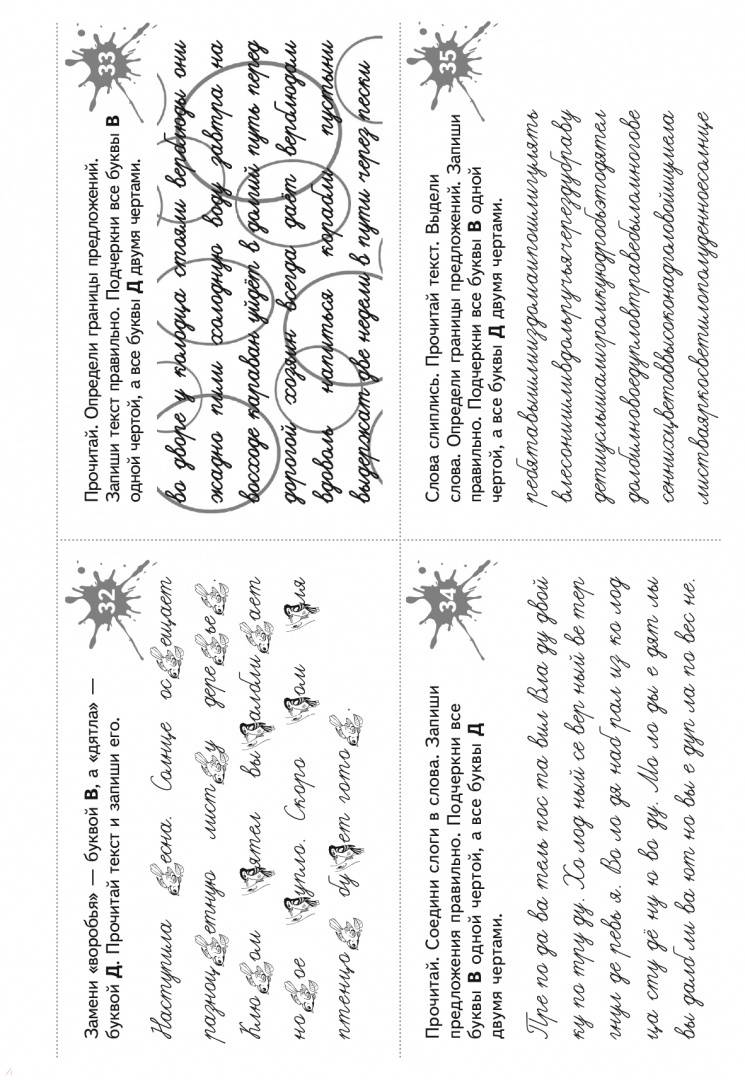 32
Замени «воробья» — буквой В, а «дятла» —
буквой Д. Прочитай текст и запиши его.
Наступила есна. Солнце ос ещает
разноц етную лист у дере ье .
Клю ом ятел вы албли ает
но ое упло. Скоро ом ля
птенцо бу ет гото .
33
Прочитай. Определи границы предложений.
Запиши текст правильно. Подчеркни все буквы В
одной чертой, а все буквы Д двумя чертами.
во дворе у колодца стояли верблюды они
жадно пили холодную воду завтра на
восходе караван уйдёт в долгий путь перед
дорогой хозяин всегда даёт верблюдам
вдоволь напиться корабли пустыни
выдержат две недели в пути через пески
34
Прочитай. Соедини слоги в слова. Запиши
предложения правильно. Подчеркни все
буквы В одной чертой, а все буквы Д
двумя чертами.
Пре по да ва тель пос та вил Вла ду двой
ку по тру ду. Хо лод ный се вер ный ве тер
гнул де ревь я. Во ло дя наб рал из ко лод
ца сту дё ну ю во ду. Мо ло ды е дят лы
вы далб ли ва ют но вы е дуп ла по вес не.
35
Слова слиплись. Прочитай текст. Выдели
слова. Определи границы предложений. Запиши
правильно. Подчеркни все буквы В одной
чертой, а все буквы Д двумя чертами.
ребятавышлииздомаипошлигулять
влесонишливдольручьячерездубраву
детиуслышалигромкуюдробьэтодятел
долбилновоедупловтравебыломногове
сеннихцветоввысоконадголовойшумела
листваяркосветилополуденноесолнце